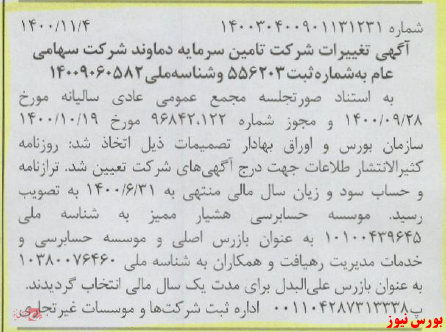 شماره ۱۴۰۰۳۰۴۰۰۹۰۱۱۳۱۲۳۱ ۱۴۰۰/۱۱/۴
آگهی تغییرات شرکت تامین سرمایه دماوند شرکت سهامی
عام به شماره ثبت ۵۵۶۲۰۳ و شناسه ملی ۱۴۰۰۹۰۶۰۵۸۲
به استناد صورتجلسه مجمع عمومی عادی سالیانه مورخ
۱۴۰۰/۰۹/۲۸ و مجوز شماره ۹۶۸۴۲.۱۲۲ مورخ ۱۴۰۰/۱۰/۱۹
سازمان بورس و اوراق بهادار تصمیمات ذیل اتخاذ شد: روزنامه
کثیرالانتشار طلاعات جهت درج آگهی‌های شرکت تعیین شد. ترازنامه
و حساب سود و زیان سال مالی منتهی به ۱۴۰۰/۶/۳۱ به تصویب
رسید. موسسه حسابرسی هشیار ممیز به شناسه ملی
۱۰۱۰۰۴۳۹۶۴۵ به عنوان بازرس اصلی و موسسه حسابرسی و
خدمات مدیریت رهیافت و همکاران به شناسه ملی ۱۰۳۸۰۰۷۶۴۶۰
به عنوان بازرس علی‌البدل برای مدت یک سال مالی انتخاب گردیدند.
پ۰۰۱۱۰۴۲۸۷۳۱۳۳۳۸ اداره ثبت شرکت‌ها و موسسات غیرتجاری
بورس نیوز